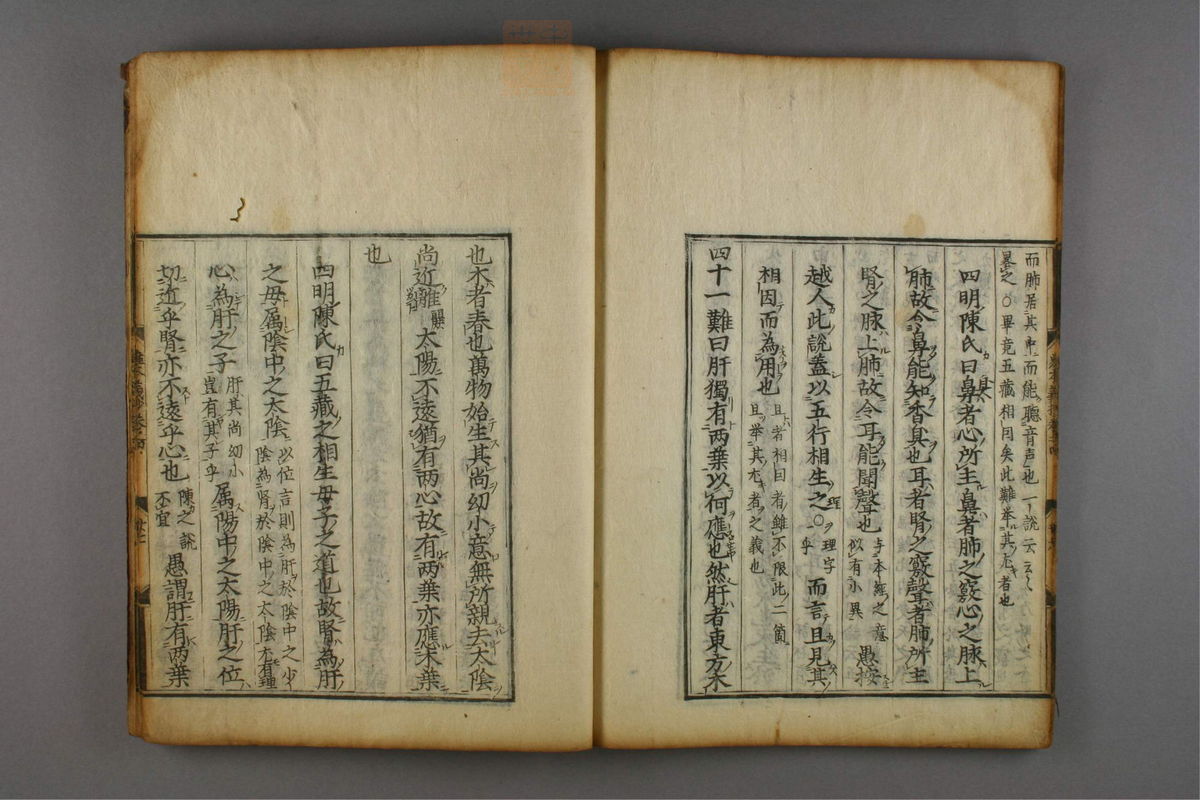 而肺居其中而能聽音声也一說云云
暴之○畢竟五藏相因矣此難挙其尤者也
四明陳氏曰鼻者心所主鼻者肺之竅心之脉上
肺故令鼻能知香臭也耳者腎之竅聲者肺所主
腎之脉上肺故令耳能聞聲也与本經之意似有小異愚按
越人此說盖以五行相生之○理字乎而言且見其
相因而為用也且者相因者雖不限此二箇且挙其尤者之義也
四十一難曰肝獨有兩葉以何應也然肝者東方木
也木者春也萬物始生其尚幼小意無所親去太陰
尚近離太陽不遠猶有兩心故有兩葉亦應木葉
也
四明陳氏曰五藏之相生母子之道也故腎為肝
之母属陰中之太陰以位言則為肝於陰中之少陰為腎於陰中之太陰
心為肝之子肝其尚幼小豈有其子乎属陽中之太陽肝之位
切近乎腎亦不遠乎心也陳之說不宜愚謂肝有兩葉